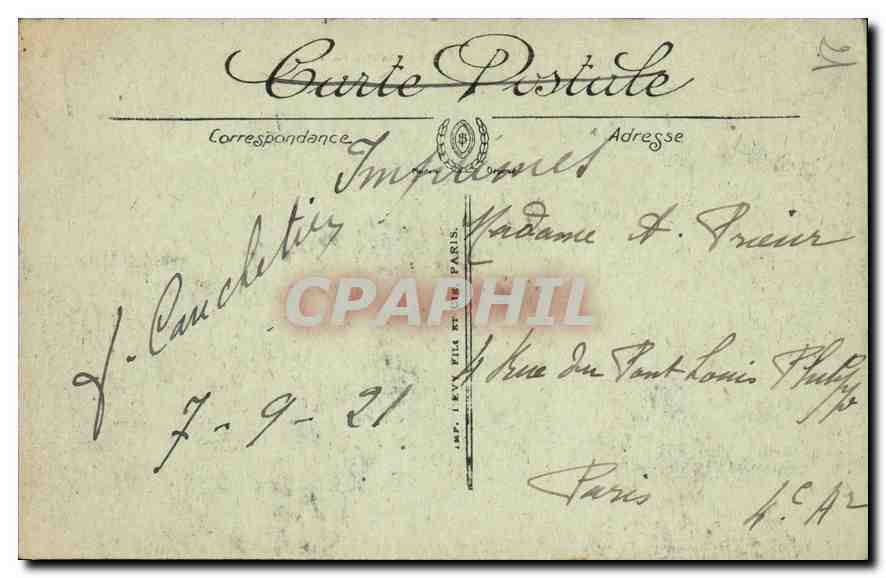 Carte Postale
Correspondance
Adresse
Imprimés
J. Cauchetier
7-9-21
IMP. LEVY FILS ET CIE. PARIS.
Madame A. Prieur
4 Rue du Pont Louis Philippe
Paris 4.e Ar
CPAPHIL